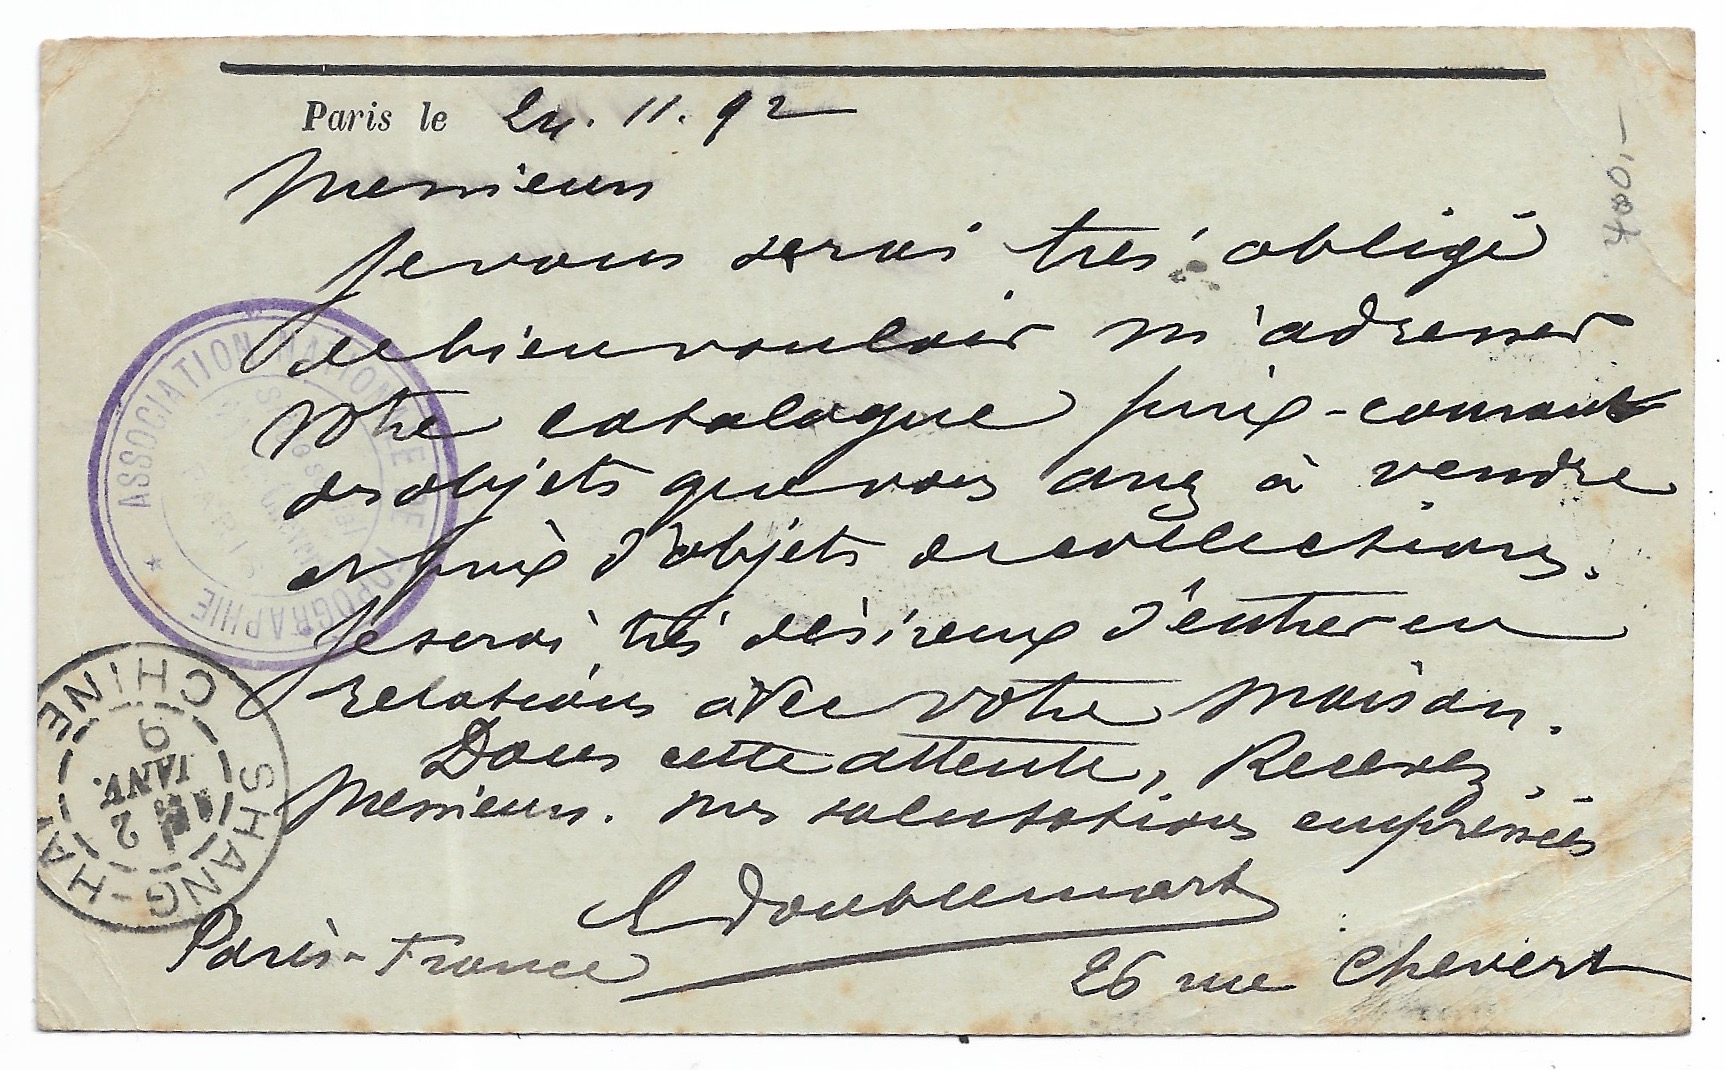 Paris le 24.11.92
400,-
Messieurs
Je vous serai très obligé
de bien vouloir m'adresser
votre catalogue prix-courant
des objets que vous avez à vendre
et prix d'objets de collections.
Je serai très désireux d'entrer en
relations avec votre maison.
Dans cette attente, Recevez
Messieurs. mes salutations empressées
E Doublemart
Paris-France
26 rue Chevert
ASSOCIATION NATIONALE DE TOPOGRAPHIE
PARIS
SHANG-HAI CHINE
2
9
JANV.